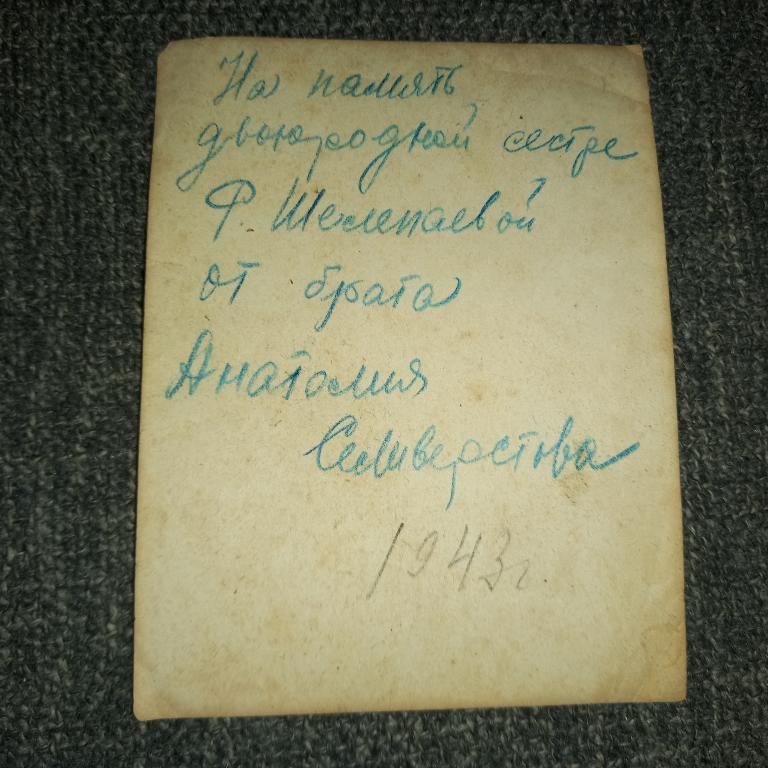 На память
двоюродной сестре
Ф. Шелепаевой
от брата
Анатолия
Селиверстова
1943 г.